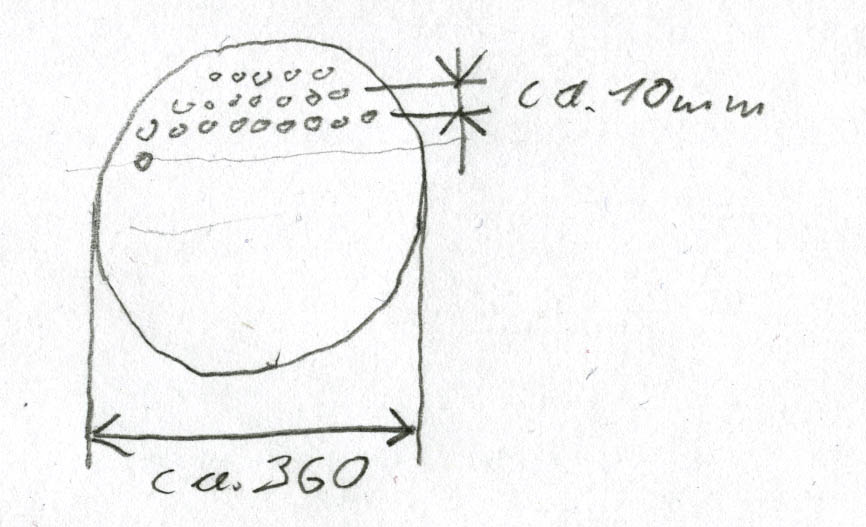 ca. 10mm
ca. 360